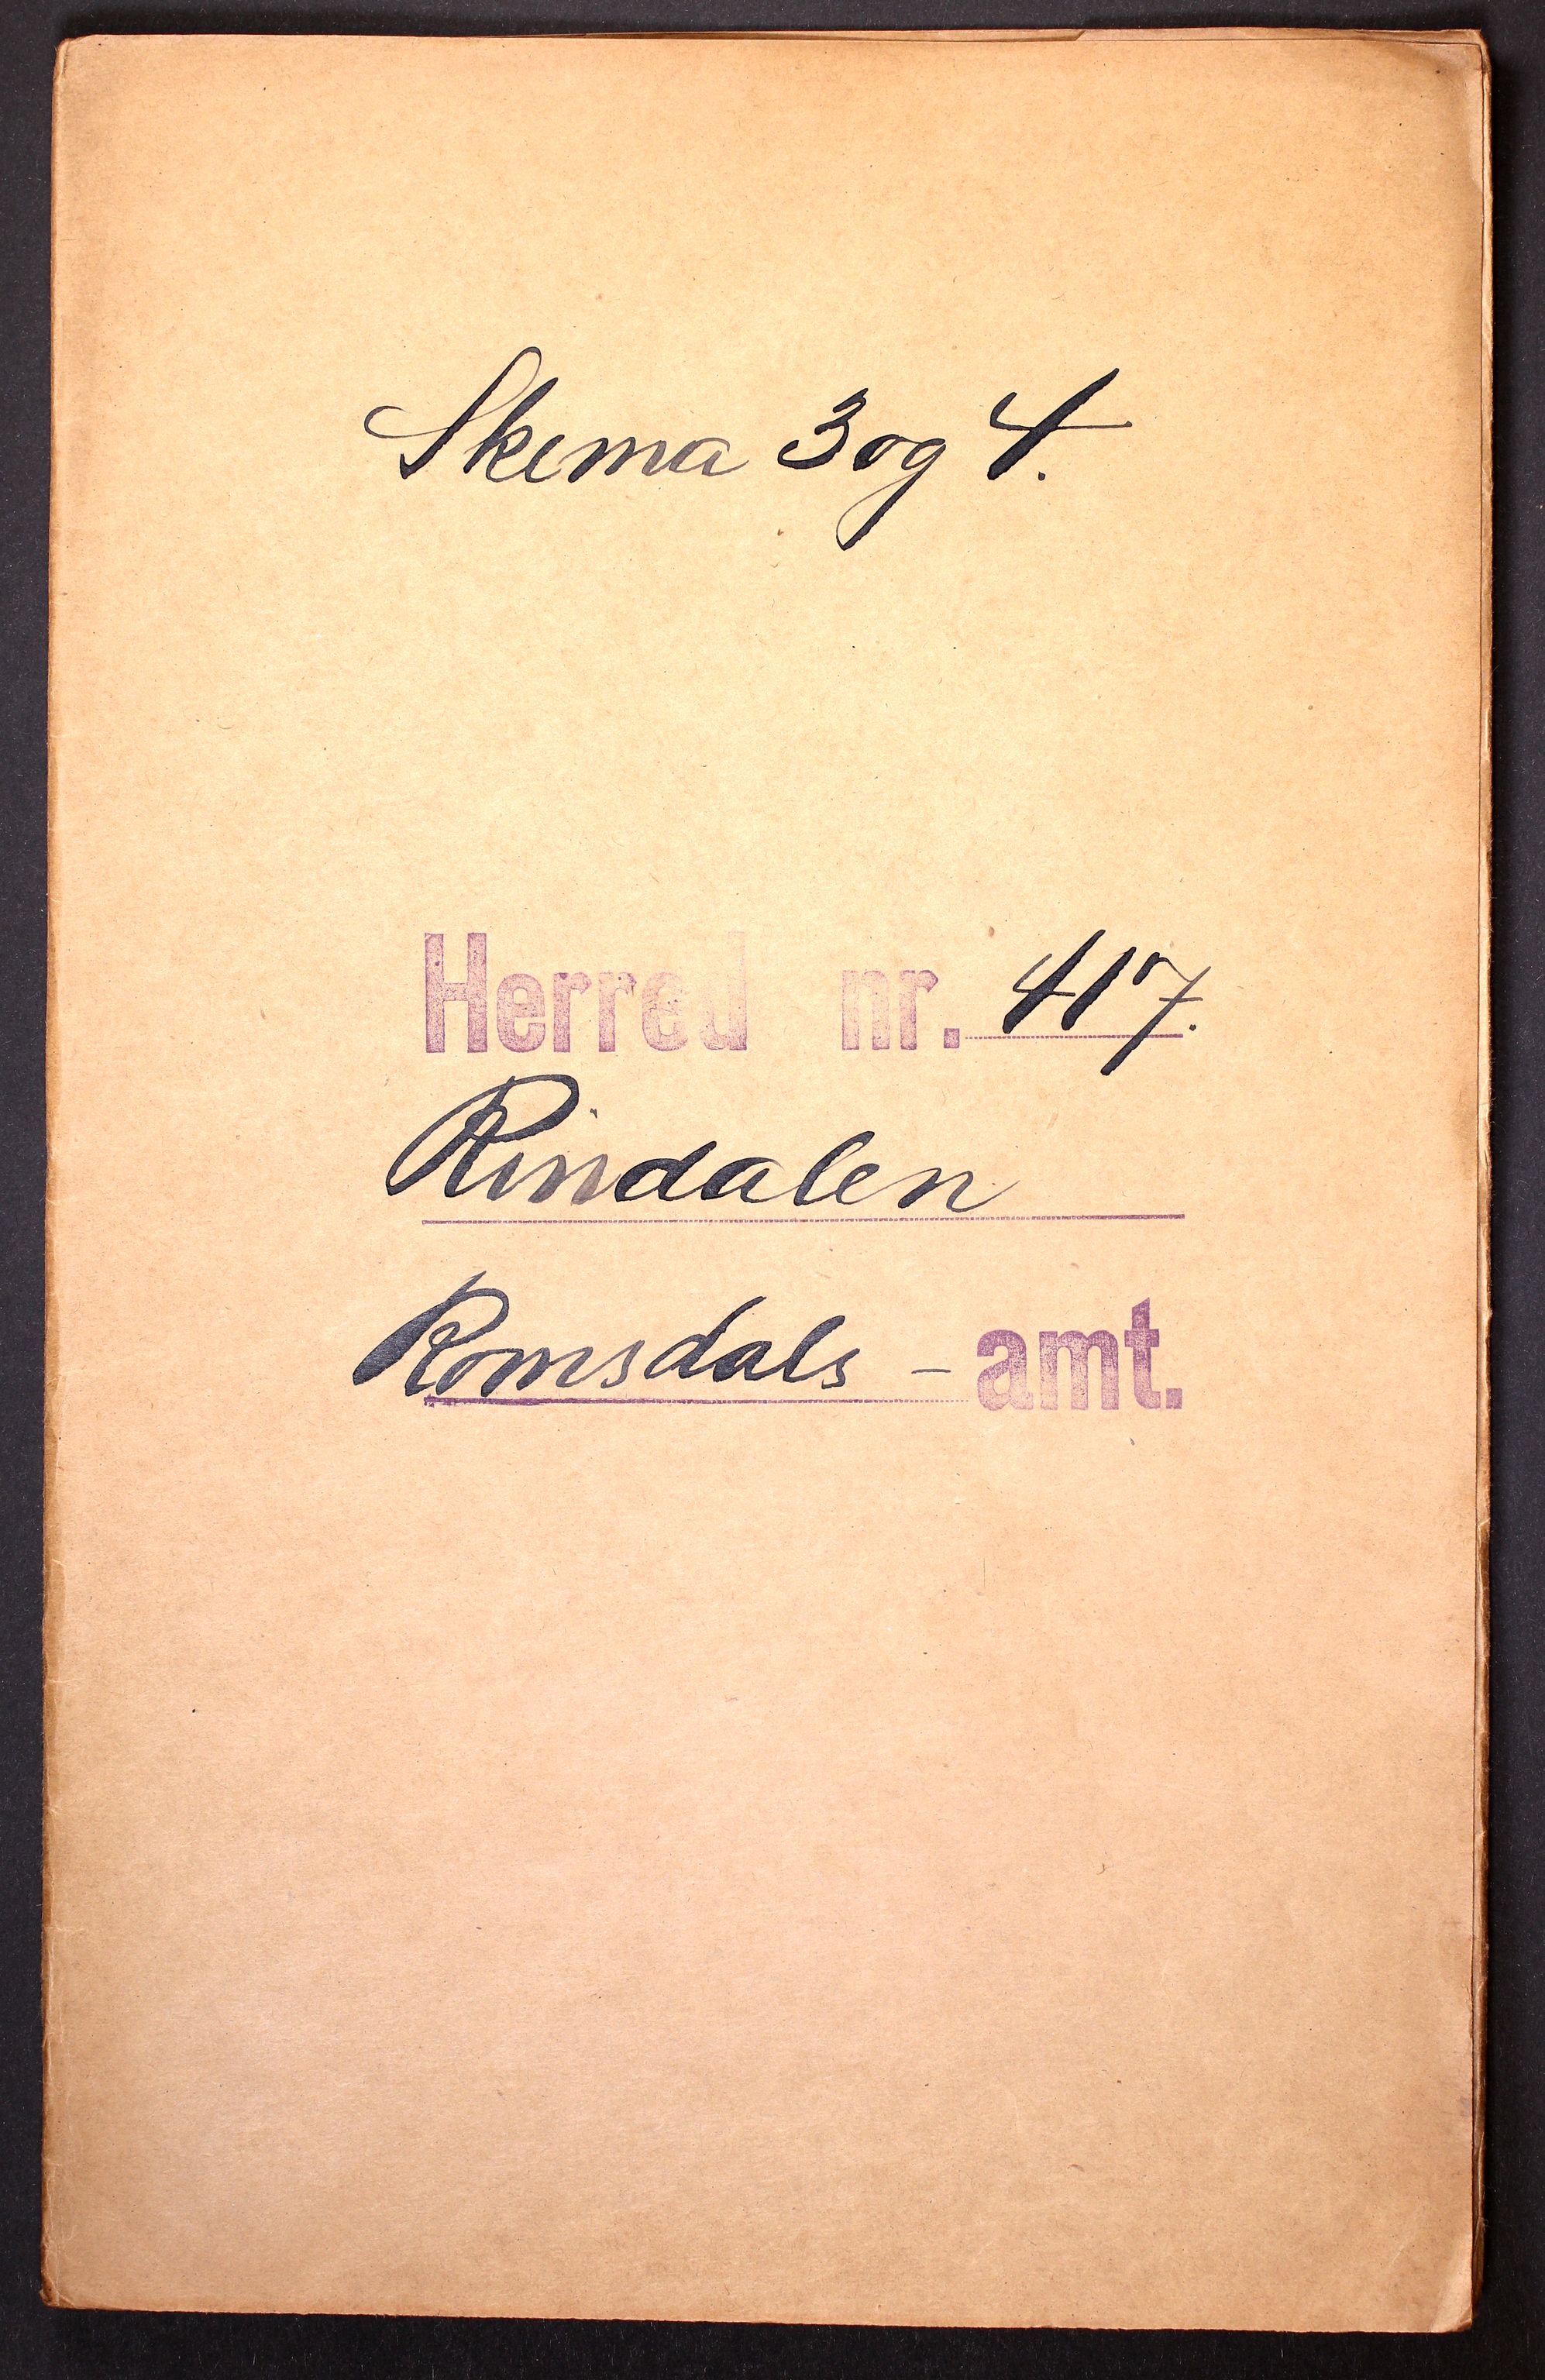 Skema 3 og 4.
Herred nr. 417.
Rindalen
Romsdals - amt.